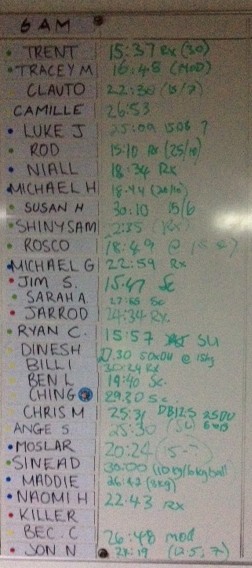 6 AM
TRENT 15:37 Rx (30)
TRACEY M 16:48 (MOD)
CLAUTO 22:30 (15/7)
CAMILLE 26:53
LUKE J 25:09 1506 ?
ROD 15:10 Rx (25/10)
NIALL 18:34 Rx
MICHAEL H 18:44
SUSAN H 30:10 15/6
SHINY SAM 2:25
ROSCO 18:49
MICHAEL G 22:59 Rx
JIM S. 15:47 Sc
SARAH A. 27:65 Sc
JARROD 24:34 Rx.
RYAN C. 15:57 SU
DINESH
BILLI 30:24 Rx
BEN L 19:40 Sc.
CHING 29.30 Sc.
CHRIS M 25:31
ANGE S. 25:30
MOSLAR 20:24
SINEAD 30:00 (10kg/6kg ball)
MADDIE 26:42 (8kg)
NAOMI H 22:43 RX
KILLER
BEC. C 26:48 mod
JON N 21:19 (12.5, 7)